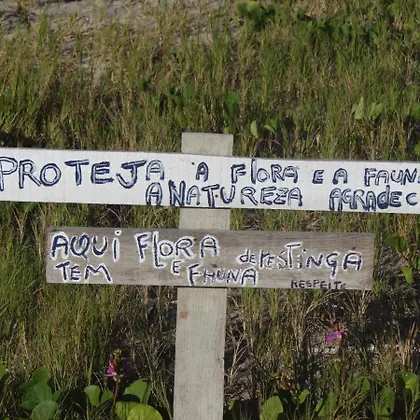 PROTEJA A FLORA E A FAUNA
A NATUREZA AGRADEC
AQUI FLORA de RESTINGA
TEM E FAUNA RESPEITE